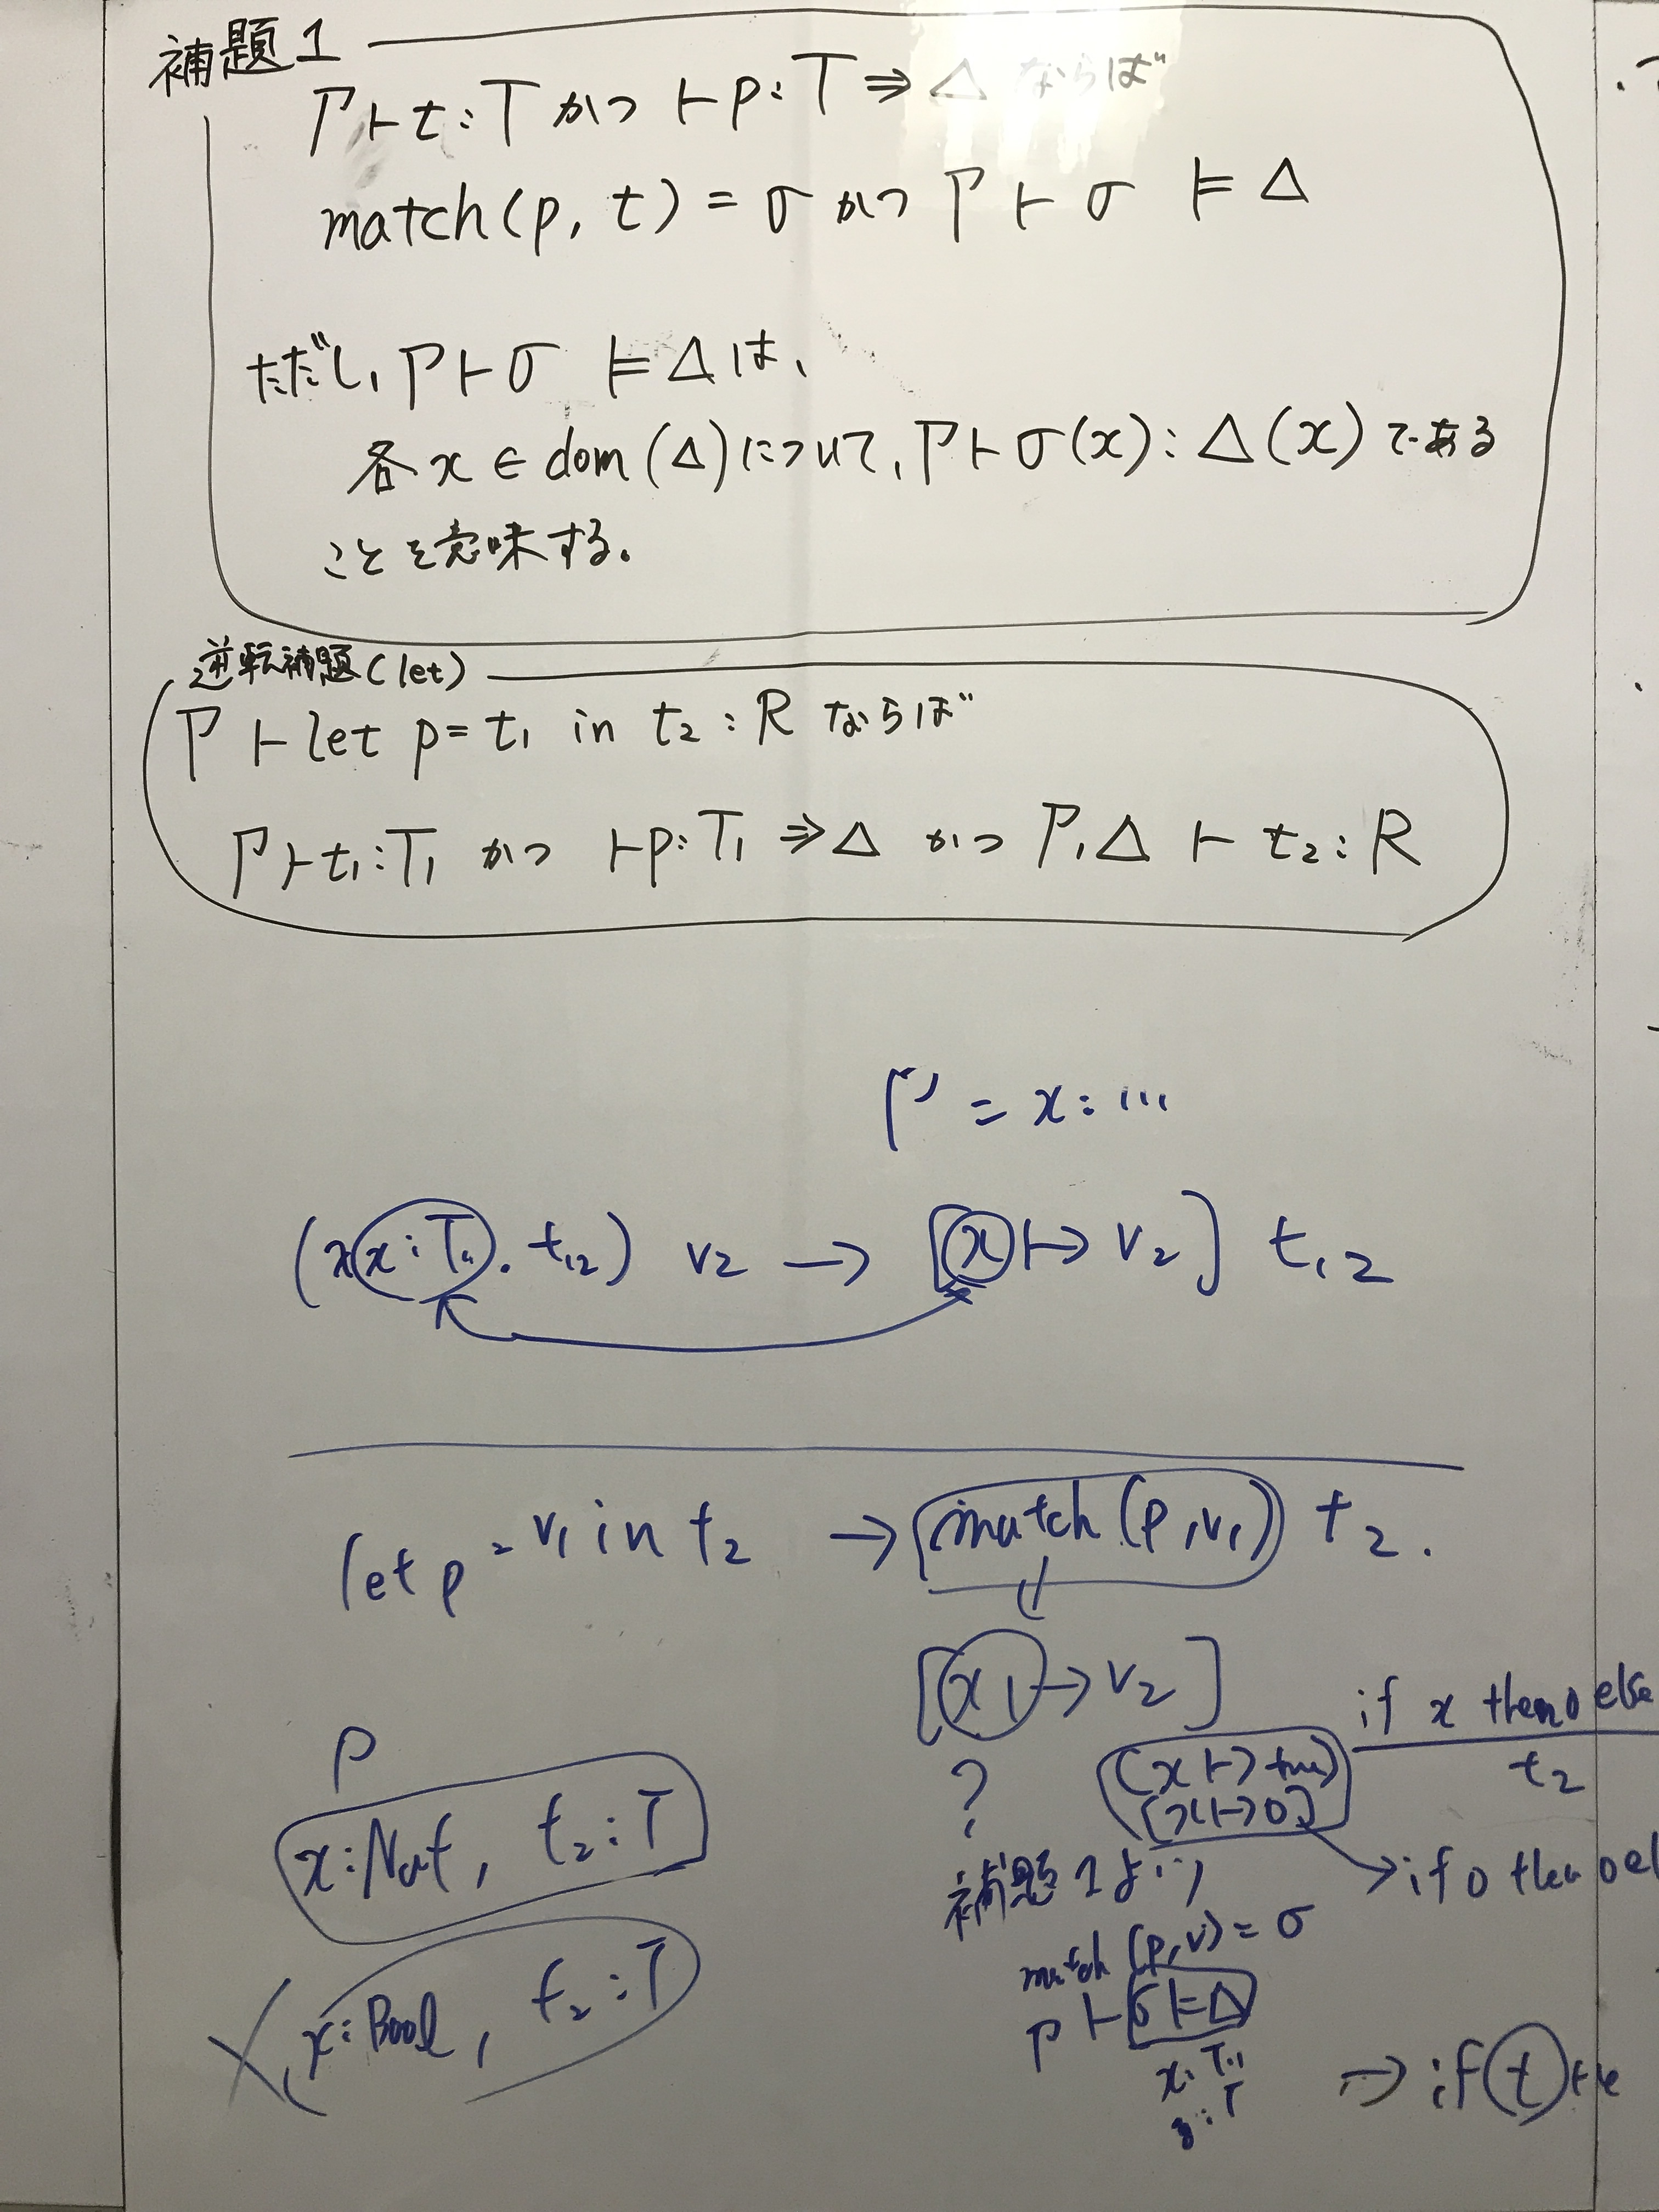 補題1
Γ ⊢ t : T かつ ⊢ p : T ⇒ Δ ならば
match(p, t) = σ かつ Γ ⊢ σ ⊨ Δ
ただし、Γ ⊢ σ ⊨ Δ は、
各 x ∈ dom(Δ) について、Γ ⊢ σ(x) : Δ(x) である
ことを意味する。
逆転補題(let)
Γ ⊢ let p = t₁ in t₂ : R ならば
Γ ⊢ t₁ : T₁ かつ ⊢ p : T₁ ⇒ Δ かつ Γ, Δ ⊢ t₂ : R
Γ' = x : ...
(λx : T₁₁. t₁₂) v₂ → [x ↦ v₂] t₁₂
let p = v₁ in t₂ → match(p, v₁) t₂.
[x ↦ v₂]
?
if x then 0 else
t₂
[x ↦ true]
[x ↦ 0]
→ if 0 then 0 el
Γ
x : Nat, t₂ : T
x : Bool, t₂ : T
補題1より
match (p, v₁) = σ
Γ ⊢ σ ⊨ Δ
x : T₁₁
y : T
→ if t the